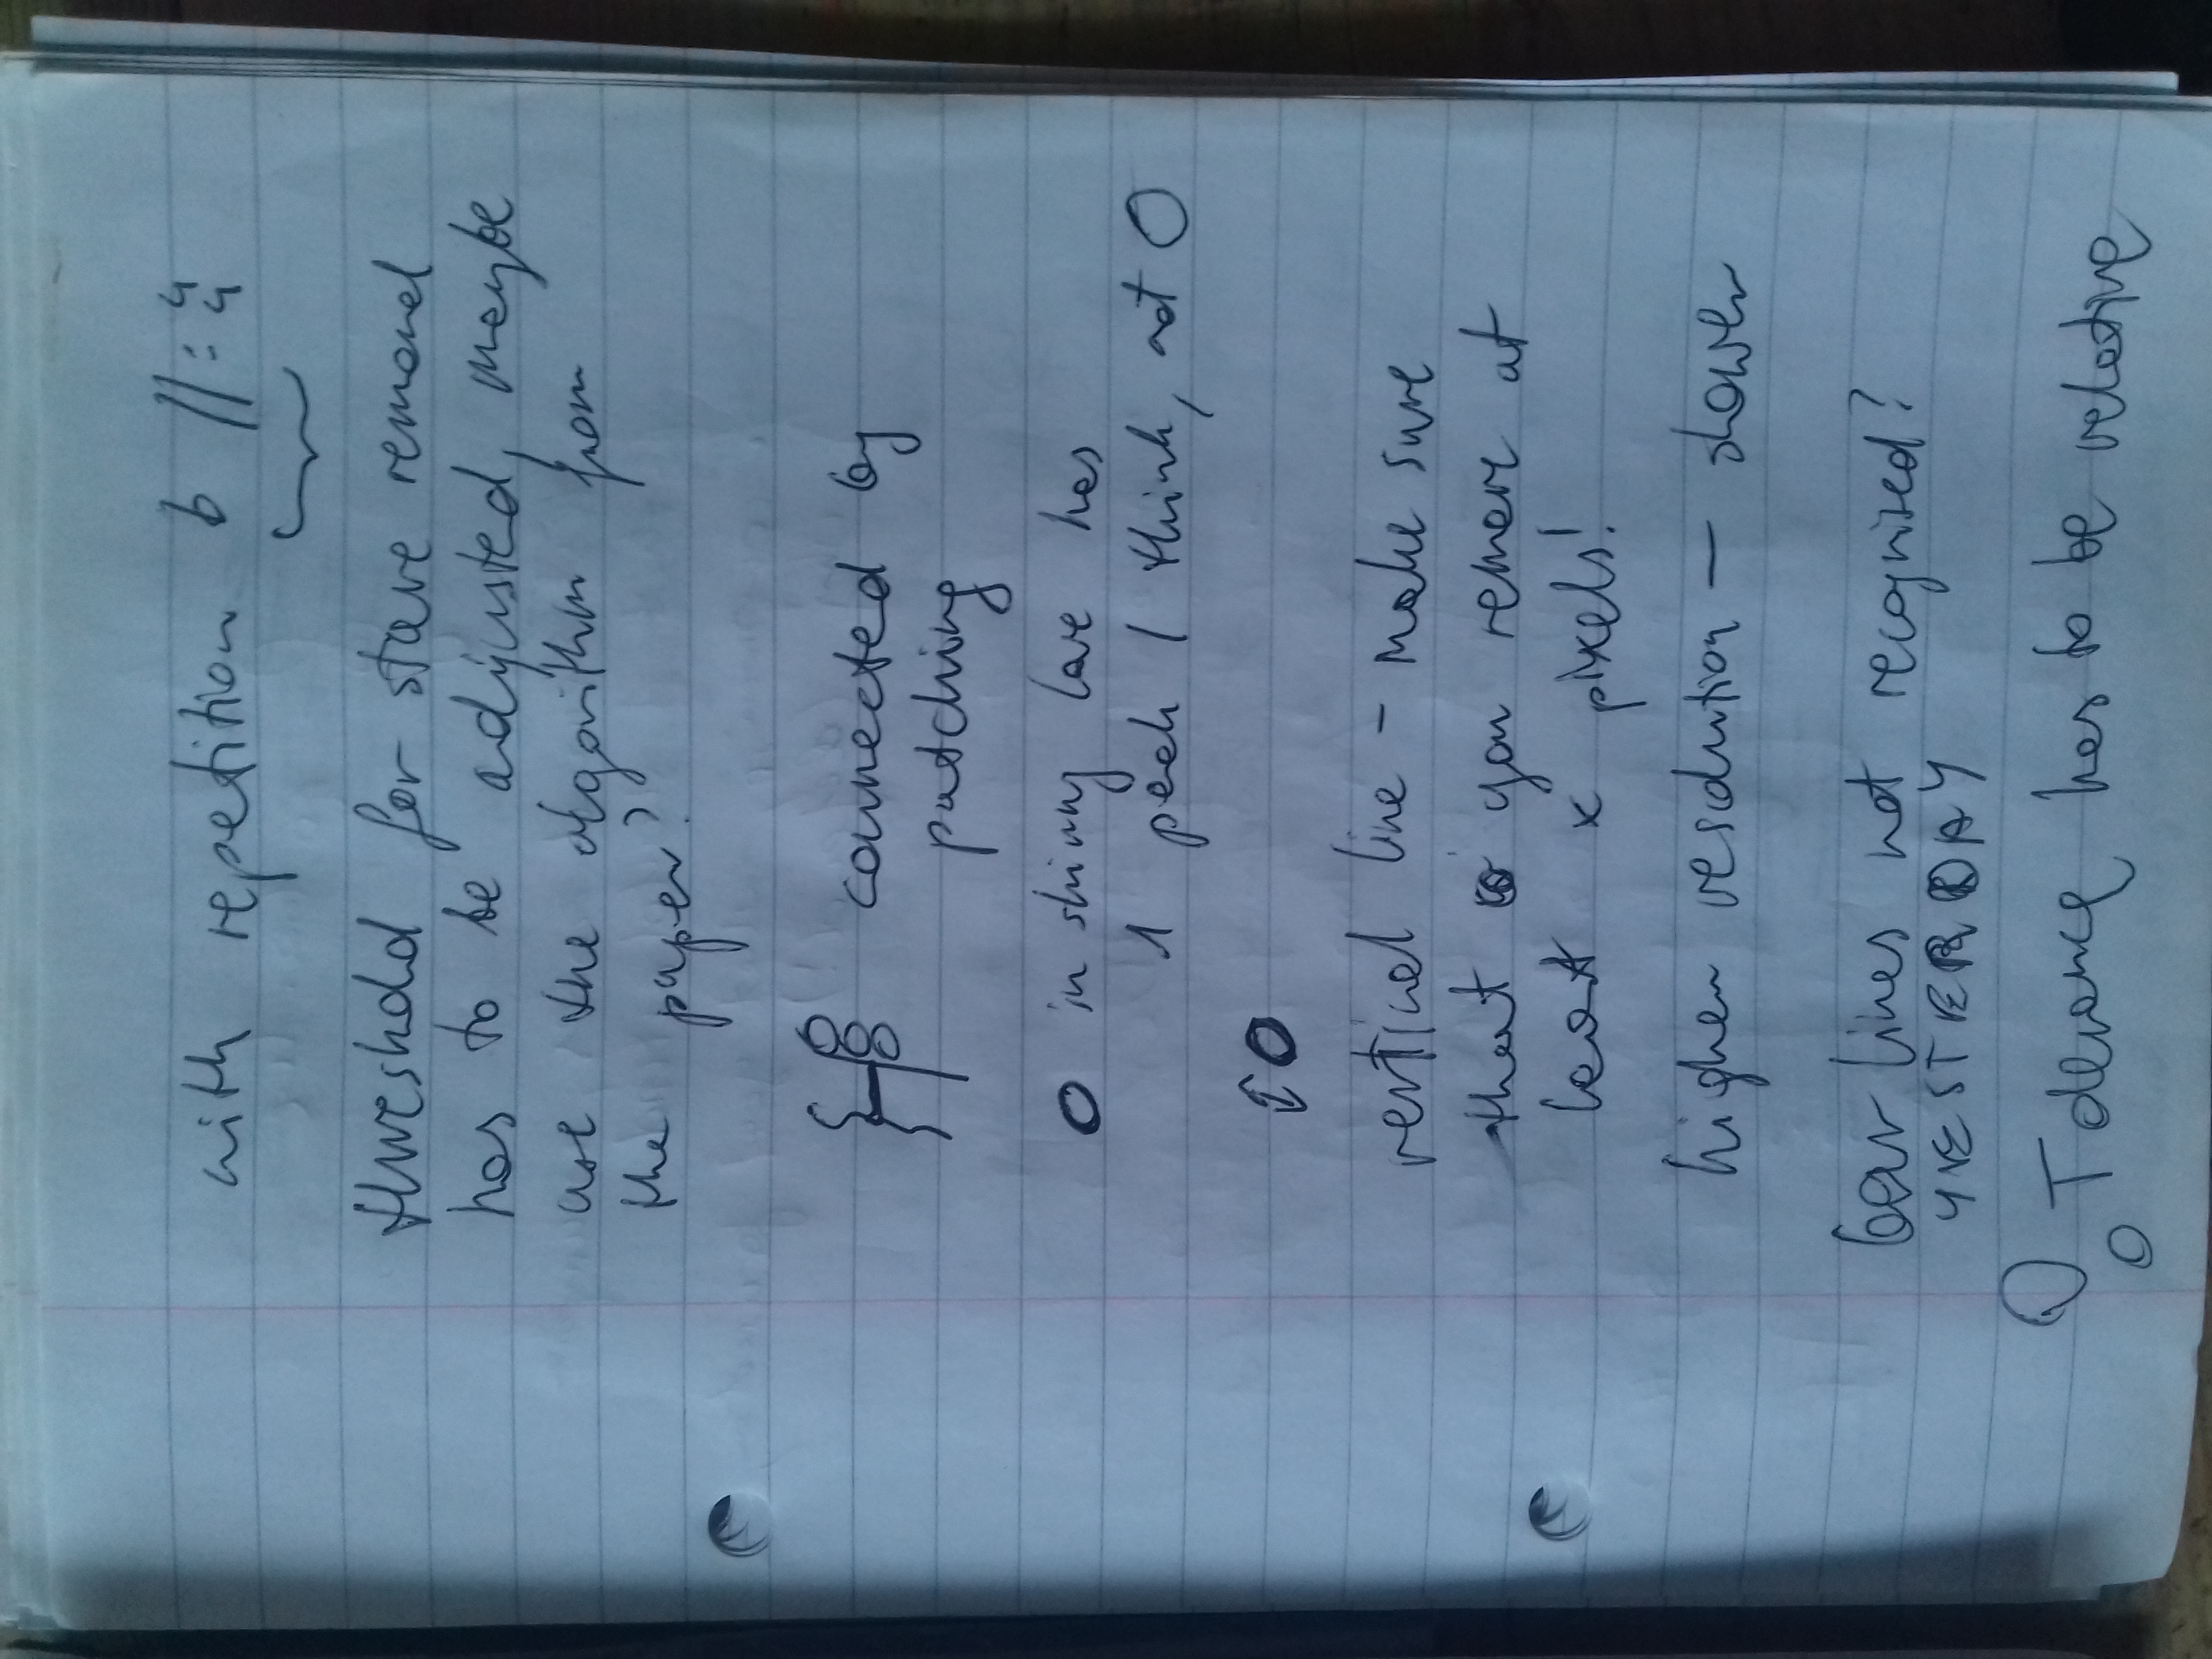 with repetition b //: 4/4
threshold for stave removal
has to be adjusted, maybe
use the algorithm from
the paper?
connected by
patching
o in shinny love has
1 peak I think, not 0
vertical line - make sure
that you remove at
least x pixels!
higher resolution — slower
bar lines not recognised?
YESTERDAY
! Tolerance has to be relative